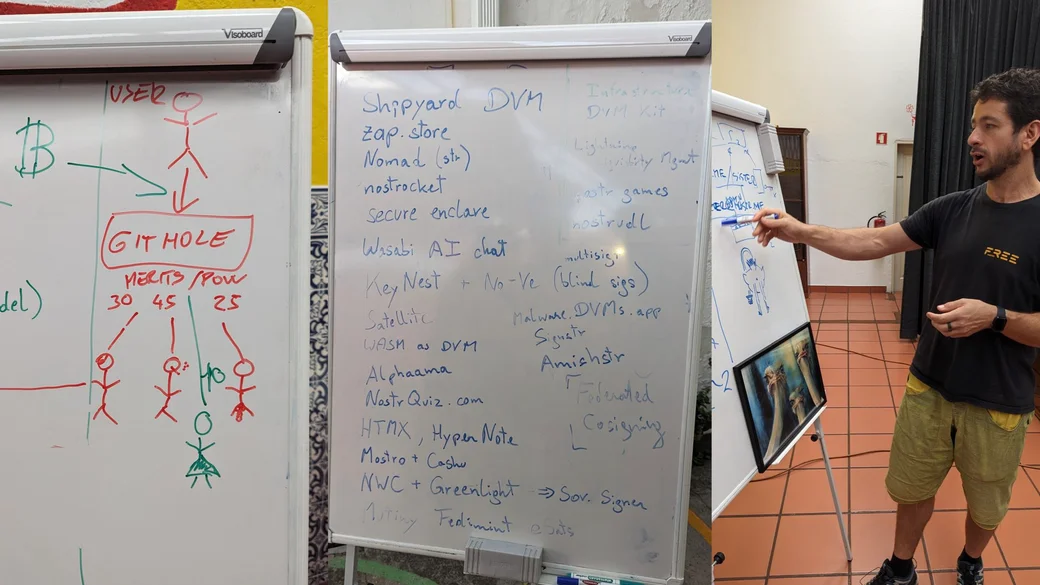 Visoboard
USER
₿
GITHOLE
MERITS/POW
30 45 25
10
del)
Visoboard
Shipyard DVM
zap.store
Nomad (str)
nostrocket
secure enclave
Wasabi AI chat
KeyNest + No-Ve (blind sigs)
Satellite
WASM as DVM
Alphaama
NostrQuiz.com
HTMX, HyperNote
Mostro + Cashu
NWC + Greenlight ⇒ Sov. Signer
Mutiny Fedimint eCats
Infrastructure
DVM Kit
Lightning
Liquidity Mgmt
nostr games
nostrudL
multisig
Malware.DVMs.app
Signstr
Amishstr
Federated
Cosigning
FREE